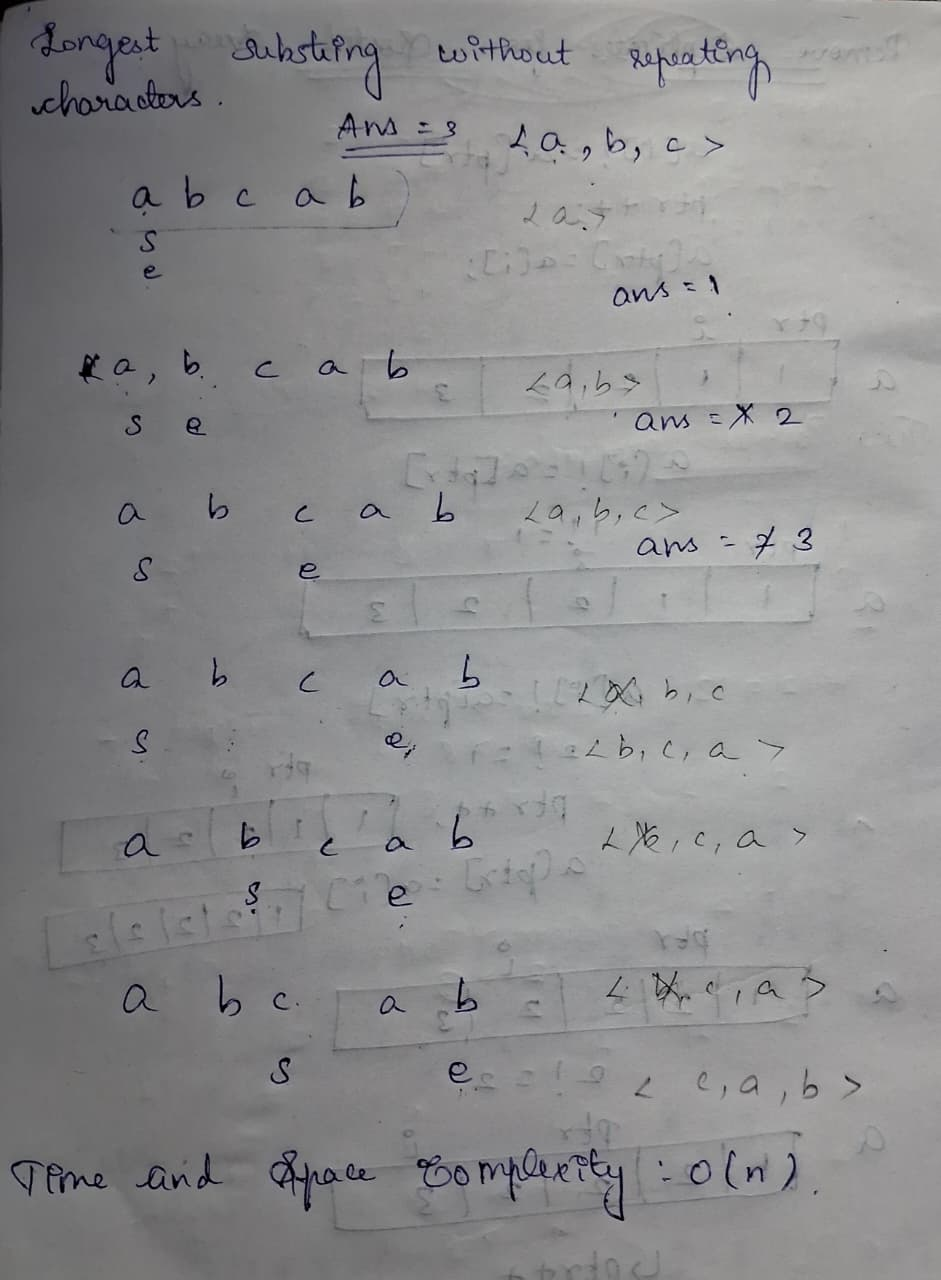 Longest substring without repeating
characters.
Ans = 3 < a, b, c >
a b c a b < a >
s
e
ans = 1
a, b c a b <a,b>
s e ans = 2
a b c a b <a,b,c>
ans = 3
s e
a b c a b < a, b, c
s e, <b, c, a >
a b c a b < b, c, a >
s e
a b c a b < b, c, a >
s e < c, a, b >
Time and Space Complexity : O(n).